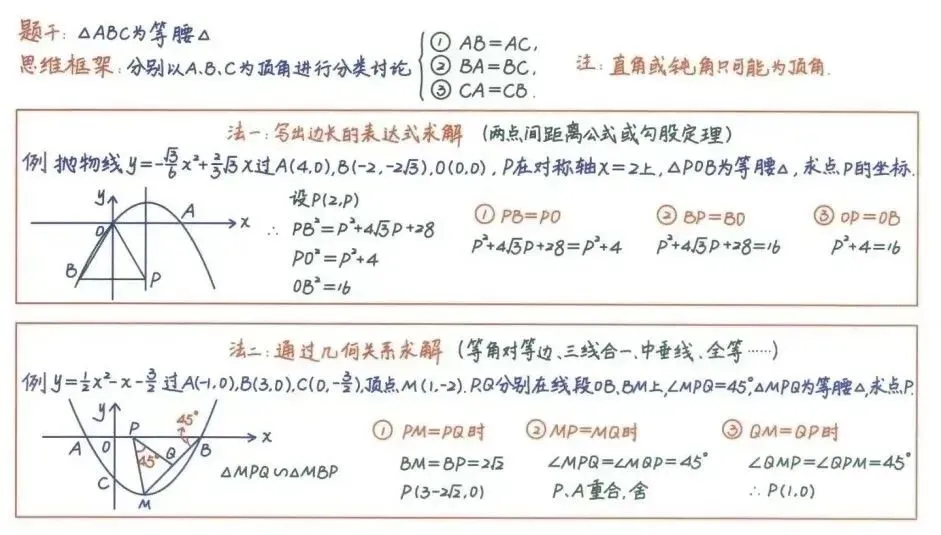 题干: △ABC为等腰△
思维框架: 分别以A.B.C为顶角进行分类讨论
① AB=AC,
② BA=BC,
③ CA=CB.
注: 直角或钝角只可能为顶角.
法一: 写出边长的表达式求解 (两点间距离公式或勾股定理)
例 抛物线 y=-√3/6x²+2/3√3x过A(4,0),B(-2,-2√3),O(0,0), P在对称轴x=2上, △POB为等腰△, 求点P的坐标.
y
A
x
O
B
P
设P(2,P)
∴ PB²=P²+4√3P+28
PO²=P²+4
OB²=16
① PB=PO
P²+4√3P+28=P²+4
② BP=BO
P²+4√3P+28=16
③ OP=OB
P²+4=16
法二: 通过几何关系求解 (等角对等边、三线合一、中垂线、全等……)
例 y=1/2x²-x-3/2 过A(-1,0),B(3,0),C(0,-3/2),顶点M(1,-2).P.Q分别在线段OB、BM上,∠MPQ=45°,△MPQ为等腰△,求点P.
y
P
45°
x
A
O
B
Q
45°
C
M
△MPQ∽△MBP
① PM=PQ时
BM=BP=2√2
P(3-2√2,0)
② MP=MQ时
∠MPQ=∠MQP=45°
P、A重合,舍
③ QM=QP时
∠QMP=∠QPM=45°
∴ P(1,0)